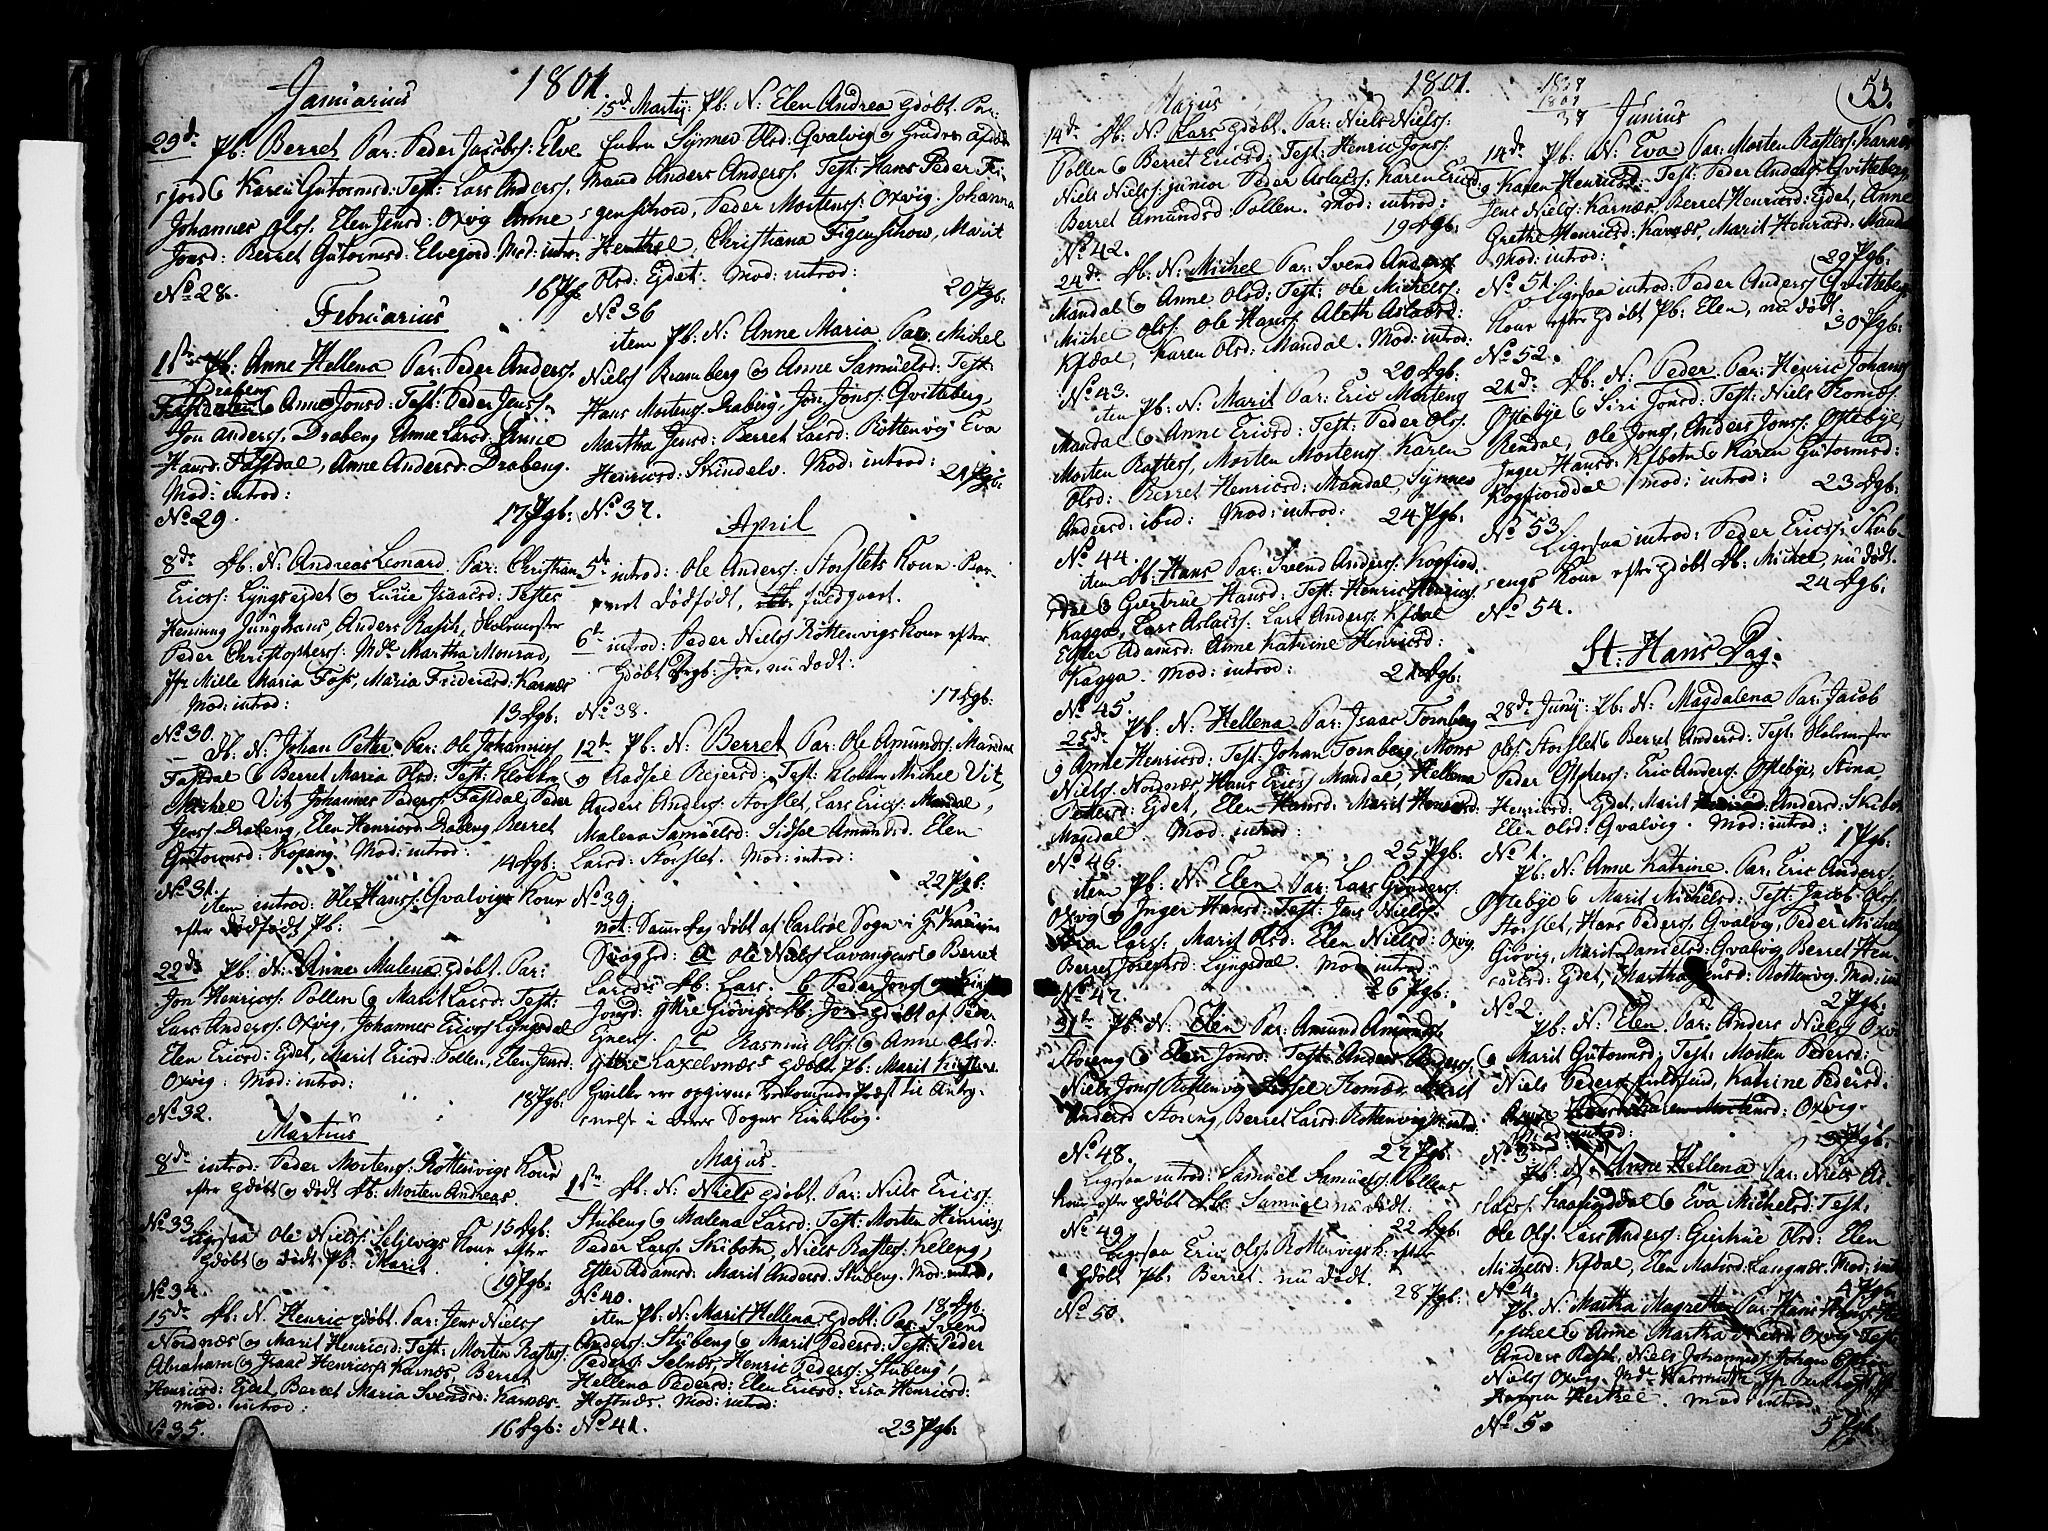 Januarius
1801.
29de Pb: Berret Par: Peder Jacobss: Elve
fjord & Karen Gutormsd: Test: Lars Anderss.
Johannes Olss. Elen Jensd: Oxvig Anne
Jonsd: Berret Gutormsd: Elvefjord Mod: intr:
No 28. 16 Pgb:
Februarius
1ste Pb: Anne Hellena Par: Peder Anderss.
Drabeng & Anne Jonsd: Test: Peder Jenss.
Jon Anderss. Drabeng Anne Larsd: Anne
Hansd: Fastdal, Anne Andersd. Drabeng.
Mod: introd:
No 29. 17 Pgb:
8de Db: N: Andreas Leonard Par: Christian
Ericss: Lyngseydet & Lucie Isaacsd: Testes
Henning Junghans, Anders Rasch, Skolemester
Peder Christophers: Mde Martha Monrad,
Jfr Mille Maria Foss, Maria Fridericsd: Karnæs
Mod: introd: 13 Dgb:
No 30.
Db: N: Johan Petter Par: Ole Johanniss
Fastdal & Berret Maria Olsd: Test: Klokker
Michel Vit Johannes Peders: Fastdal, Peder
Jenss: Drabeng, Elen Henricsd: Drabeng Berret
Gutormsd: Kopang. Mod: introd: 14 Dgb:
No 31.
item introd: Ole Hanss: Qvalvigs Kone
efter dødfødt Pb:
22de Pb: N: Anne Malena gdøbt. Par:
Jon Henricss: Pollen & Marit Larsd: Test:
Lars Anderss: Oxvig, Johannes Ericss Lyngsdal
Elen Ericsd: Eydet, Marit Ericsd: Pollen, Elen Jensd:
Oxvig. Mod: introd: 18 Pgb:
No 32.
Martius
8de introd: Peder Mortens: Rottenvigs Kone
efter gdøbt & død Db: Morten Andreas.
No 33. 15 Dgb:
Ligesaa Ole Niels: Seljevigs Kone efter
gdøbt & dødt Pb: Marit.
No 34. 19 Pgb:
15de Db: N. Henric gdøbt. Par: Jens Nielss
Nordnæs & Marit Henricsd: Test: Morten Raftess:
Abraham & Isaac Henricss: Karnæs, Berret
Henricsd: Eydet, Berret Maria Svendsd: Karnæs.
Mod: introd:
No 35. 16 Dgb:
15de Martij: Pb: N: Elen Andrea gdøbt. Par:
Enken Synnev Olsd: Qvalvig &
Mand Anders Anderss. Test: Hans Peder Fi-
genschow, Peder Mortens: Oxvig. Johanna
Henthel, Christiana Figenschow, Marit
Olsd: Eydet. Mod: introd:
No 36 20 Pgb:
item Pb: N: Anne Maria. Par: Michel
Nielss Kramberg & Anne Samuelsd: Test:
Hans Mortens: Drabeng, Jon Jonss: Qvitteberg,
Martha Jensd: Berret Larsd: Rottenvig Eva
Henricsd: Skindelv. Mod: introd:
No 37. 21 Pgb:
April
5te introd: Ole Anderss. Storslets Kone
dødfødt, fuldgaaet.
6te introd: Peder Nielss Rottenvigs Kone efter
gdøbt Jon, nu dødt.
No 38. 17 Dgb:
12te Pb: N: Berret Par: Ole Amundss. Mandal
& Radsel Rejersd: Test: Klokker Michel Vit
Anders Anders: Storslet, Lars Erics: Mandal,
Malena Samuelsd: Sidsel Amundsd. Elen
Larsd: Storslet. Mod: introd:
No 39. 22 Pgb:
not: Samme Dag døbt af Carlsøe Sogn i
a Ole Niels Lavangens & Berret
Larsdr Db: Lars. b Peder Jons &
Jonsd: Ytre Giøvigs Db: Jon gdøbt af Peder
Ejners: c Rasmus Olss: & Anne Olsd:
Yttre Laxelvnæss gdøbt Pb: Marit
Hvilke ere opgivne Vedkommende Præst til Anteg-
nelse i deres Sogns Kirkebog.
Majus
1ste Db: N: Niels gdøbt. Par: Nils Ericss:
Stubeng & Malena Larsd: Test: Morten Henricss:
Peder Larss. Skibotn, Niels Raftess: Keleng,
Efter Adamsd: Marit Andersd: Stubeng. Mod: introd,
No 40. 18. Dgb:
item Pb: N: Marit Hellena, gdøbt: Par: Svend
Anderss: Stubeng & Marit Pedersd: Test: Peder
Peders: Selnæs, Henric Peders: Stubeng,
Hellena Pedersd: Elen Ericsd: Lisa Henricsd:
Hestnæs. Mod: introd:
No 41. 23 Pgb:
Majus
1801.
14de Db: N. Lars gdøbt. Par: Niels Nielss:
Pollen & Berret Ericsd: Test: Henric Jonss:
Niels Nielss: junior Peder Aslacss: Karen Ericsd:
Berret Amundsd: Pollen. Mod: introd:
No 42. 19 Dgb:
24de Db: N. Michel Par: Svend Anderss
Mandal & Anne Olsd: Test: Ole Michelss:
Michel Olss. Ole Hanss: Aleth Aslacsd:
Kfdal, Karen Olsd: Mandal. Mod: introd:
No 43. 20 Dgb:
item Pb: N: Marit Par: Eric Mortens
Mandal & Anne Ericsd: Test: Peder Olss.
Morten Raftess, Morten Mortens: Karen
Olsd: Berret Henricsd: Mandal, Synnev
Andersd: ibid: Mod: introd:
No 44. 24 Pgb:
item Db: Hans Par: Svend Anderss: Kogfiord
& Giertrue Hansd: Test: Henric Henricss:
Kagga, Lars Aslacss: Lars Anderss. Kfdal
Efter Adamsd: Anne Katrine Henricsd:
Kagga. Mod: introd: 21 Dgb:
No 45.
25de Pb: N: Hellena Par: Isaac Tornberg
& Anne Henricsd: Test: Johan Tornberg, Mons
Niels: Nordnæs, Hans Ericss Mandal, Hellena
Pettersd: Eydet, Elen Hansd: Marit Hansd:
Mandal. Mod: introd:
No 46. 25 Pgb:
item Pb: N: Elen Par: Lars Gunderss.
Oxvig & Inger Hansd: Test: Jens Nielss.
Larss. Marit Olsd: Elen Nielsd: Oxvig
Berret Josephsd: Lyngsdal. Mod: introd:
No 47. 26 Pgb:
31te Pb: N: Elen Par: Amund Amundss.
Storeng & Elen Jonsd: Test: Anders Anderss,
Niels Jonss Rottenvig Sidsel Marit
Andersd Storeng, Berret Larsd: Rottenvig M: introd:
No 48. 27 Pgb:
Ligesaa introd: Samuel Samuelss. Pollens
Kone efter gdøbt Db: Samuel nu dødt.
No 49 22 Dgb:
Ligesaa Eric Olss. Rottenvigs k. efter
gdøbt Pb: Berret. nu dødt.
No 50. 28 Pgb:
1801
38
Junius
53.
14de Pb: N: Eva Par: Morten Raftess: Karnæs
& Karen Henricsd: Test: Peder Anders Qvitteberg,
Jens Nielss: Karnæs, Berret Henricsd: Eydet, Anne
Grethe Henricsd: Karnæs, Marit Henricsd: Mandal
Mod: introd: 29 Pgb:
No 51. Ligesaa introd: Peder Anderss Qvitteberg
Kone efter gdøbt Pb: Elen, nu dødt
No 52. 30 Pgb:
21de Db: N: Peder Par: Henric Johanss
Østebye & Siri Jonsd: Test: Niels Tomæs
Rendal, Ole Jonss, Anders Jonss: Østebye,
Inger Hansd: Kfbotn & Karen Gutormsd:
Kogfiorddal Mod: introd: 23 Dgb:
No 53. Ligesaa introd: Peder Ericss: Stub-
engs Kone efter gdøbt Db: Michel, nu dødt.
24 Dgb:
No 54.
St: Hans Dag.
28de Junij: Pb: N: Magdalena Par: Jacob
Olss. Storslet & Berret Andersd: Test: Skolemester
Peder Eric Anderss. Østebye, Stina
Henricsd: Eydet, Marit Andersd: Skibotn
Elen Olsd: Qvalvig. Mod: introd:
No 1. 1 Pgb:
Pb: N: Anne Katrine Par: Eric Anderss.
Østebye & Marit Michelsd: Test: Jacob Olss.
Storslet, Hans Peders: Qvalvig, Peder Michels
Giøvig, Marit Danielsd: Qvalvig, Berret Hen-
ricsd: Eydet, Martha Jensd: Rottenvig. Mod: int
No 2. 2 Pgb:
Pb: N: Elen Par: Anders Nielss Oxvig
& Marit Gutormsd: Test: Morten Pederss:
Niels Peders Katrine Pedersd.
Karen Mortensd: Oxvig.
Mod: introd:
No 3. 3 Pgb:
Pb: N: Anne Hellena Par: Niels As-
lacss. & Eva Michelsd: Test:
Ole Olss. Lars Anders: Giertrue Olsd: Elen
Michelsd: Kfdal, Elen Matsd: Langnæs. Mod: int
No 4. 4 Pgb:
Pb: N: Martha Magrethe Par: Hans
& Anne Martha Nielsd Oxvig Test:
Anders Rasch, Niels Johanness: Johan
Niels Oxvig. Mde
Mod: introd:
No 5. 5 Pgb: